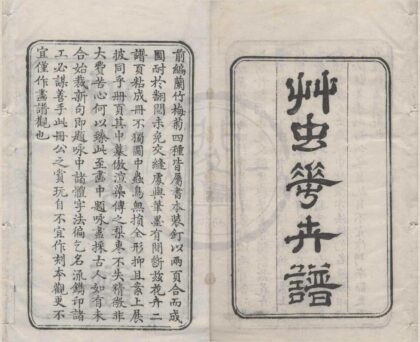 艸虫花卉譜
前編蘭竹梅菊四種皆屬書本裝釘以兩頁合而成
圖耐於翻閱未免交縫處與筆墨有間斷茲花卉二
譜頁粘成冊不獨圖中蟲鳥無損全形抑且案上展
披同乎冊頁其中摹倣渲染傳之梨棗不失精微非
大費苦心何以臻此至畫中題咏盡採古人如有未
合始裁新句即題咏中諸體字法徧乞名流鐫印諸
工必謀善手此冊公之賞玩自不宜作刻本觀更不
宜僅作畫譜觀也